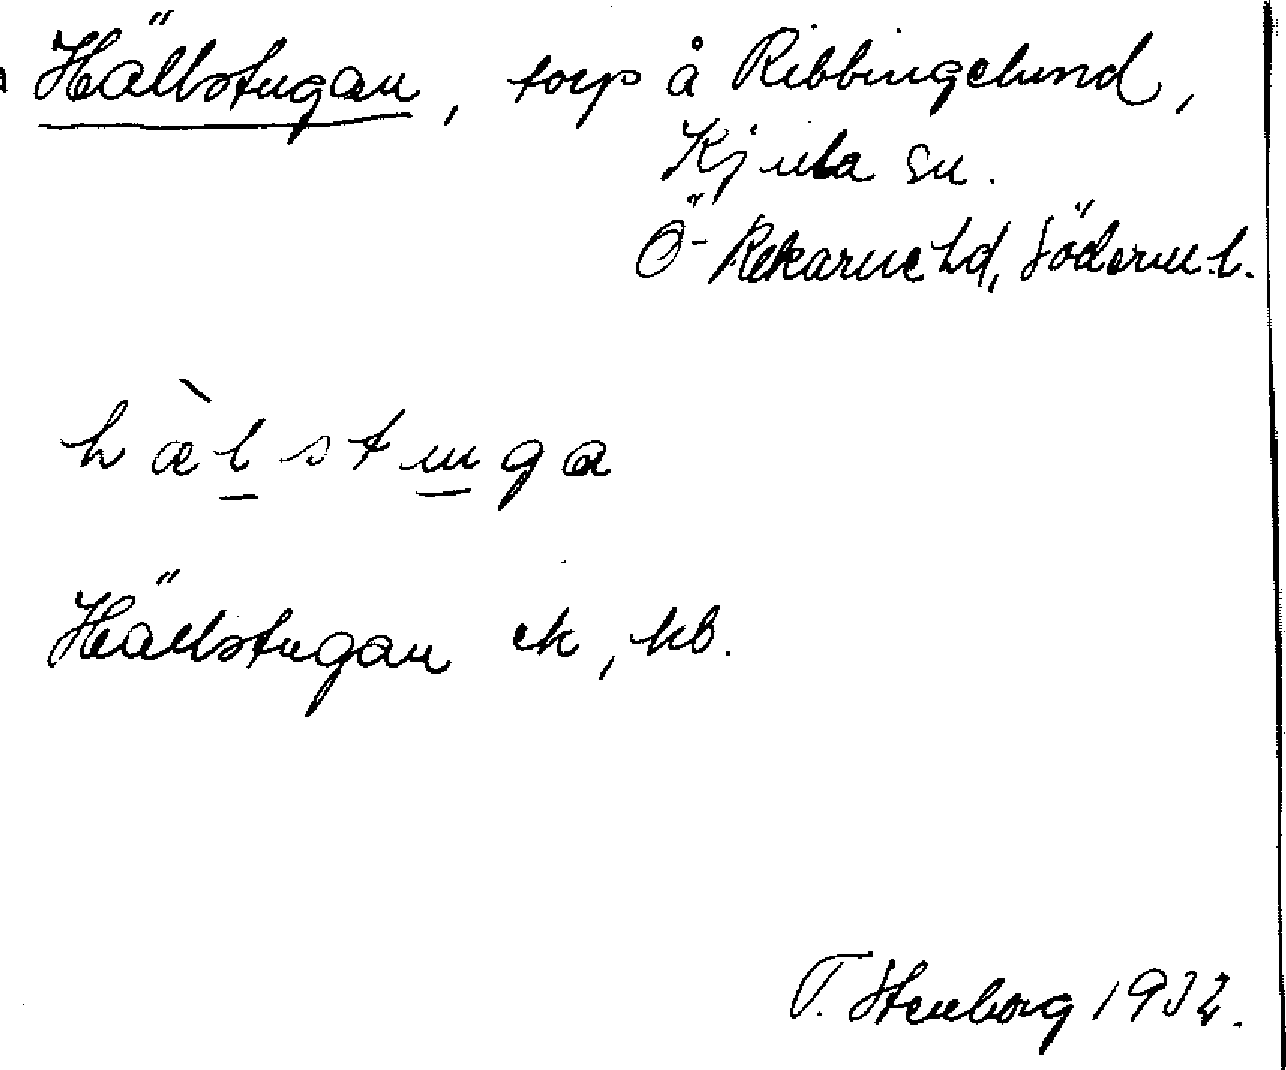 Hällstugan, torp å Ribbingelund,
Kjula sn.
Ö-Rekarne hd, Söderm.l.
hæ̀lstuga
Hällstugan ek, kb.
T. Stenborg 1932.